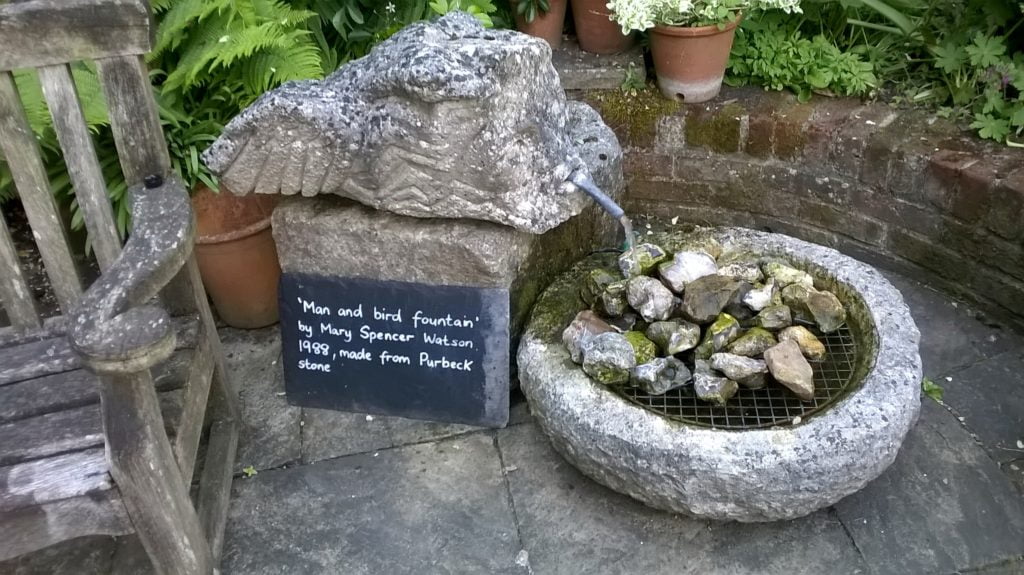 'Man and bird fountain'
by Mary Spencer Watson
1988, made from Purbeck
stone